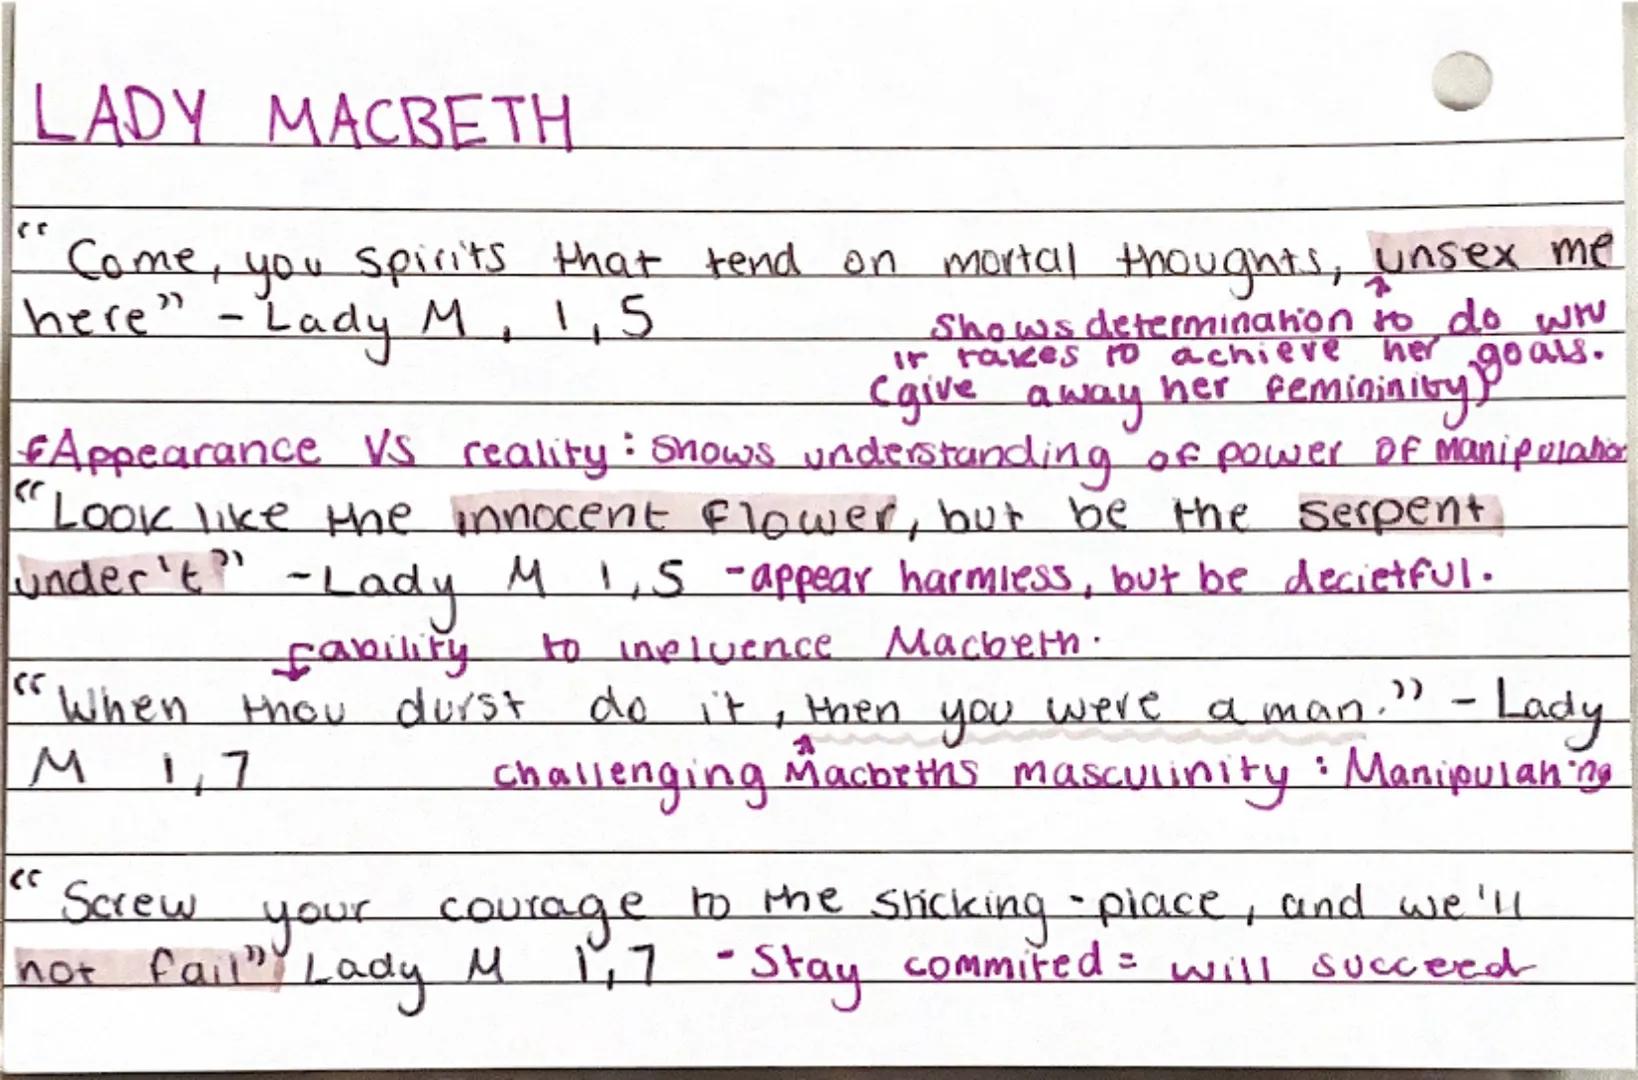 LADY MACBETH
"Come, you spirits that tend on mortal thoughts, unsex me
here" - Lady M, 1,5
Shows determination to do
it takes to achieve her goals.
(give away her femininity)
Appearance VS reality: shows understanding of power of manipulation
"Look like the innocent flower, but be the serpent
under't" - Lady M 1,5 - appear harmless, but be decietful.
ability to infeluence Macbeth.
"When thou durst do it, then you were a man." - Lady
M 1,7
challenging Macbeths masculinity: Manipulating
"Screw your courage to the sticking-place, and we'll
not fail" Lady M 1,7 - Stay commited = will succeed